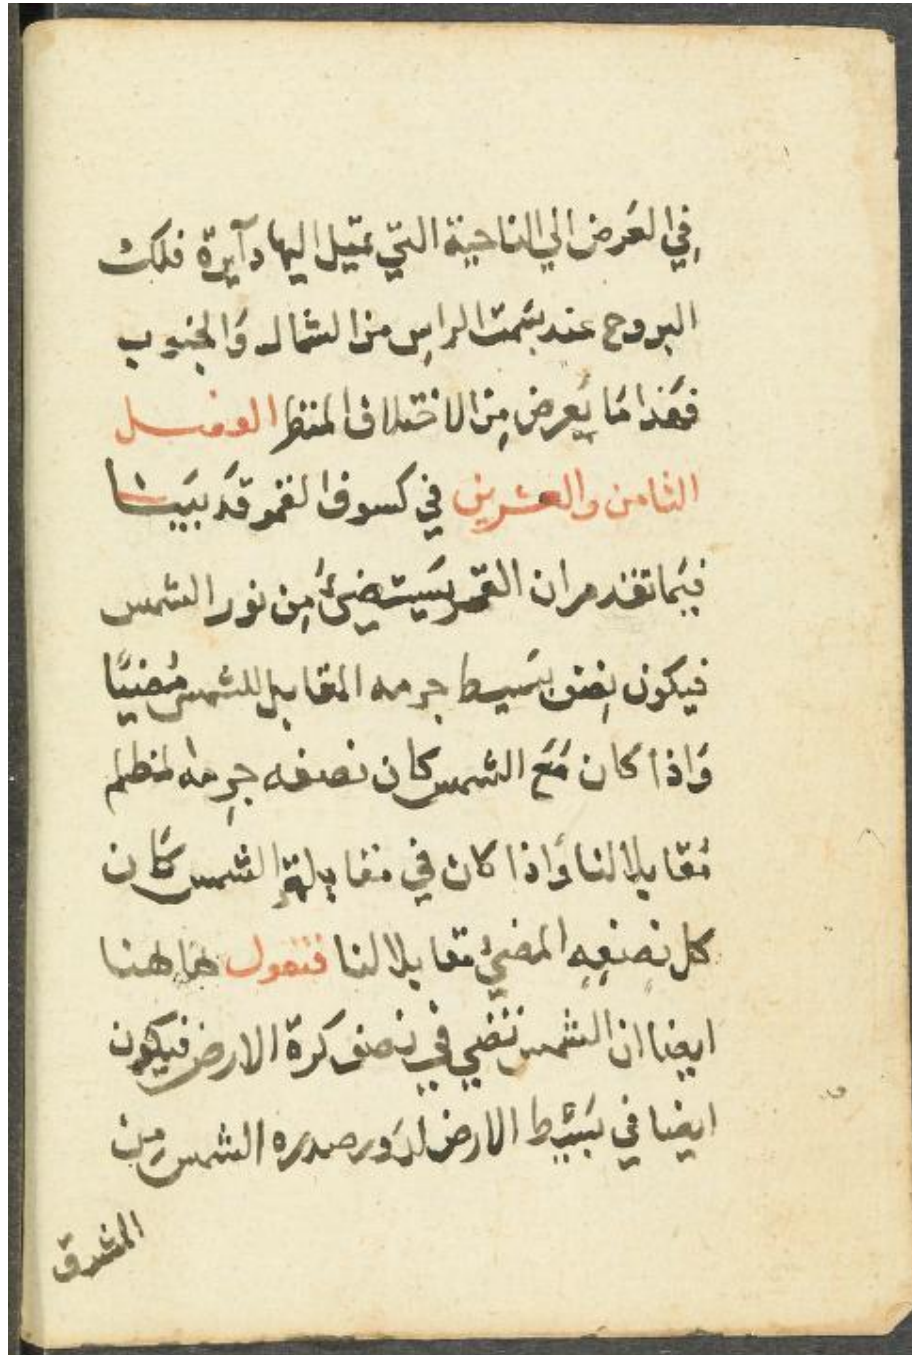 فِي العَرض الي الناحية التي تميل اليها دآيرة فلك
البروج عند سمت الراس من الشمال وَالجنوب
فهَذا مَا يَعرض مِن الاختلاف المنظر الفصل
الثامن والعشرين في كسوف القمر قدَ بيَنا
فيَما تقدم ان القمر يسَتضيُ مِن نور الشمس
فيكون نِصف بسَيط جرمه المقابل للشمس مُضيًا
وَاذا كان مَعَ الشمس كان نصفه جرمه المظلم
مُقابلا لنا وَاذا كان في مقابلة الشمس كَان
كل نصفِهِ المضيُ مقابلا لنا فنقول هاهنا
ايضا ان الشمس تضي في نصف كرة الارض فيكون
ايضا في بسَيط الارض لدَور الشمس مِن
المشرق